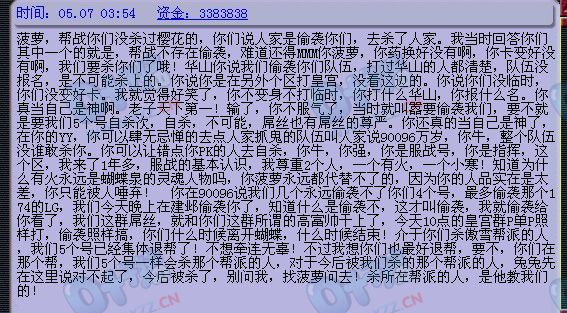 时间：05.07 03:54 资金：3383838
菠萝，帮战你们没杀过樱花的，你们说人家是偷袭你们，去杀了人家。我当时回答你们
其中一个的就是，帮战不存在偷袭，难道还得MMM你菠萝，你药换好没有啊，你卡变好没
有啊，我们要杀你们了哦！华山你说我们偷袭你们队伍，打过华山的人都清楚，队伍没
报名，是不可能杀上的。你说你是在另外个区打皇宫，没看这边的。你说你们没临时，
你们没变好卡。我就觉得好笑了，你不变身不打临时，你打什么华山，你报什么名。你
真当自己是神啊，老子天下第一！输了，你不服气了，当时就叫嚣要偷袭我们，要不就
是要我们5个号自杀次，自杀，不可能，屌丝也有屌丝的尊严。你还真的当自己是神了，
在你的YY，你可以肆无忌惮的去点人家抓鬼的队伍叫人家说90096万岁，你牛，整个队伍
没谁敢杀你。你可以让错点你PK的人去自杀，你牛，你强，你是服战号，你是指挥，这
个区，我来了1年多，服战的基本认识，我尊重2个人，一个有火，一个小寒！知道为什
么有火永远是蝴蝶泉的灵魂人物吗，你菠萝永远都代替不了的，因为你的人品实在是太
差，你只能被人唾弃！ 你在90096说我们几个永远偷袭不了你们4个号，最多偷袭那个1
74的LG，我们今天晚上在建邺偷袭你了，知道什么是偷袭不，这才叫偷袭，我就偷袭给
你看了，我们这群屌丝，就和你们这群所谓的高富帅干上了，今天10点的皇宫群P单P照
样打，偷袭照样搞，你们什么时候离开蝴蝶，什么时候结束！介于你们杀傲雪帮派的人
，我们5个号已经集体退帮了！不想牵连无辜！不过我想你们也最好退帮，要不，你们在
那个帮，我们5个号一样会杀那个帮派的人，对于今后被我们杀的那个帮派的人，兔兔先
在这里说对不起了，今后被杀了，别问我，找菠萝问去！杀所在帮派的人，是他教我们
的！